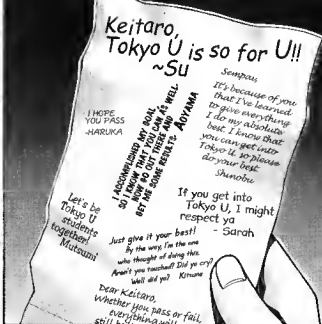 Keitaro,
Tokyo U is so for U!!
~Su
Sempai,
It's because of you
that I've learned
to give everything
I do my absolute
best. I know that
you can get into
Tokyo U, so please
do your best
Shinobu
I HOPE
YOU PASS
-HARUKA
I ACCOMPLISHED MY GOAL,
SO I KNOW THAT YOU CAN AS WELL.
NOW GO OUT THERE AND
GET ME SOME RESULTS. AOYAMA
Let's be
Tokyo U
students
together!
Mutsumi
If you get into
Tokyo U, I might
respect ya
- Sarah
Just give it your best!
By the way, I'm the one
who thought of doing this.
Aren't you touched? Did ya cry?
Well did ya? Kitsune
Dear Keitaro,
Whether you pass or fail,
everything will
still be